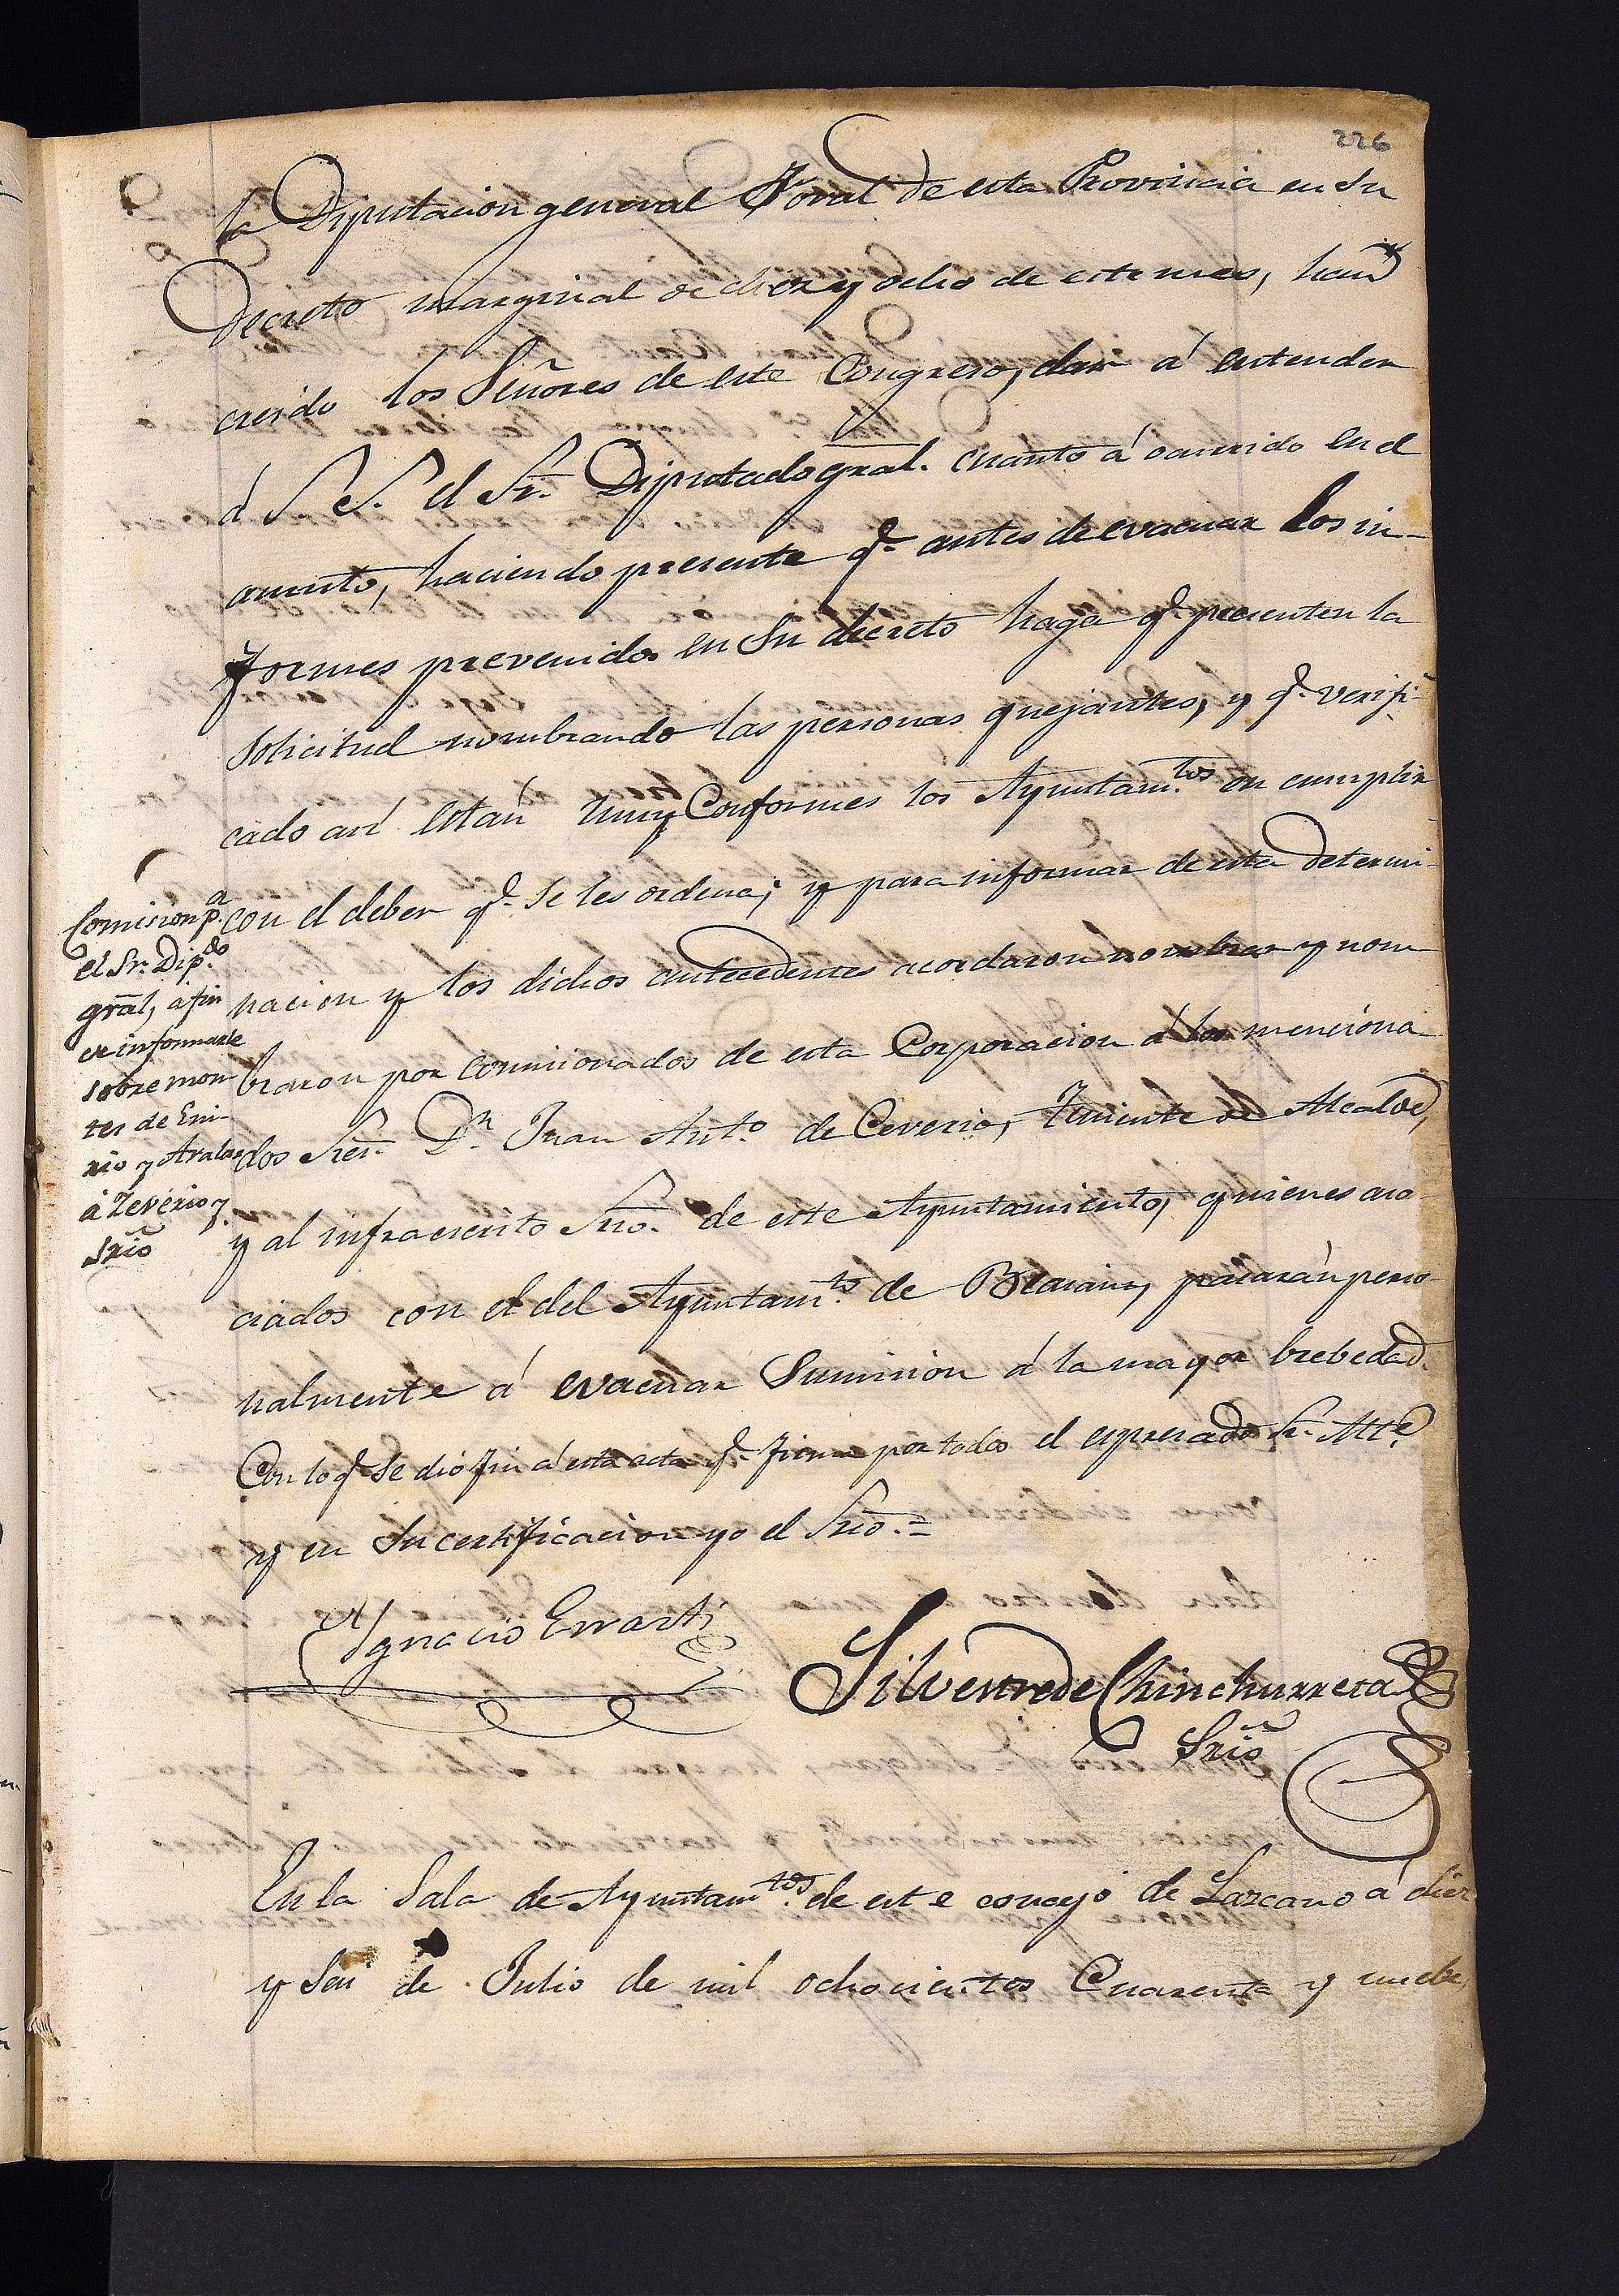 226
la Diputacion general Foral de esta Provincia en su
Decreto marginal de diez y ocho de este mes, han
creido los Señores de este Congreso, dar á entender
á S. S. el Sr. Diputado gral. cuanto á ocurrido en el
asunto, haciendo presente q.e antes de evacuar los in-
formes prevenidos en su decreto haga q.e presenten la
solicitud nombrando las personas quejantes, y q.e verifi-
cado asi están muy Conformes los Ayuntam.tos en cumplir
con el deber q.e se les ordena; y para informar de esta determi-
nacion y los dichos antecedentes acordaron nombrar y nom
braron por comisionados de esta Corporacion á los menciona
dos Sres. Dn Juan Ant.o de Ceverio, Teniente de Alcalde,
y al infraescrito Srio. de este Ayuntamiento, quienes aso-
ciados con el del Ayuntam.to de Beasain, pasarán perso-
nalmente á evacuar su mision á la mayor brebedad.
Con lo q.e se dió fin á esta acta q.e firma por todos el espresado Sr. Alte
y en su certificacion yo el Srio.=
Comision p.a
el Sr. Dip.do
gral, a fin
de informarle
sobre mon-
tes de Eni-
rio y Aralar
á Zeverio y
Srio
Ygnacio Errasti
Silvestre de Chinchurreta
Srio
En la Sala de Ayuntam.tos de este concejo de Lazcano á diez
y seis de Julio de mil ochocientos Cuarenta y nuebe,